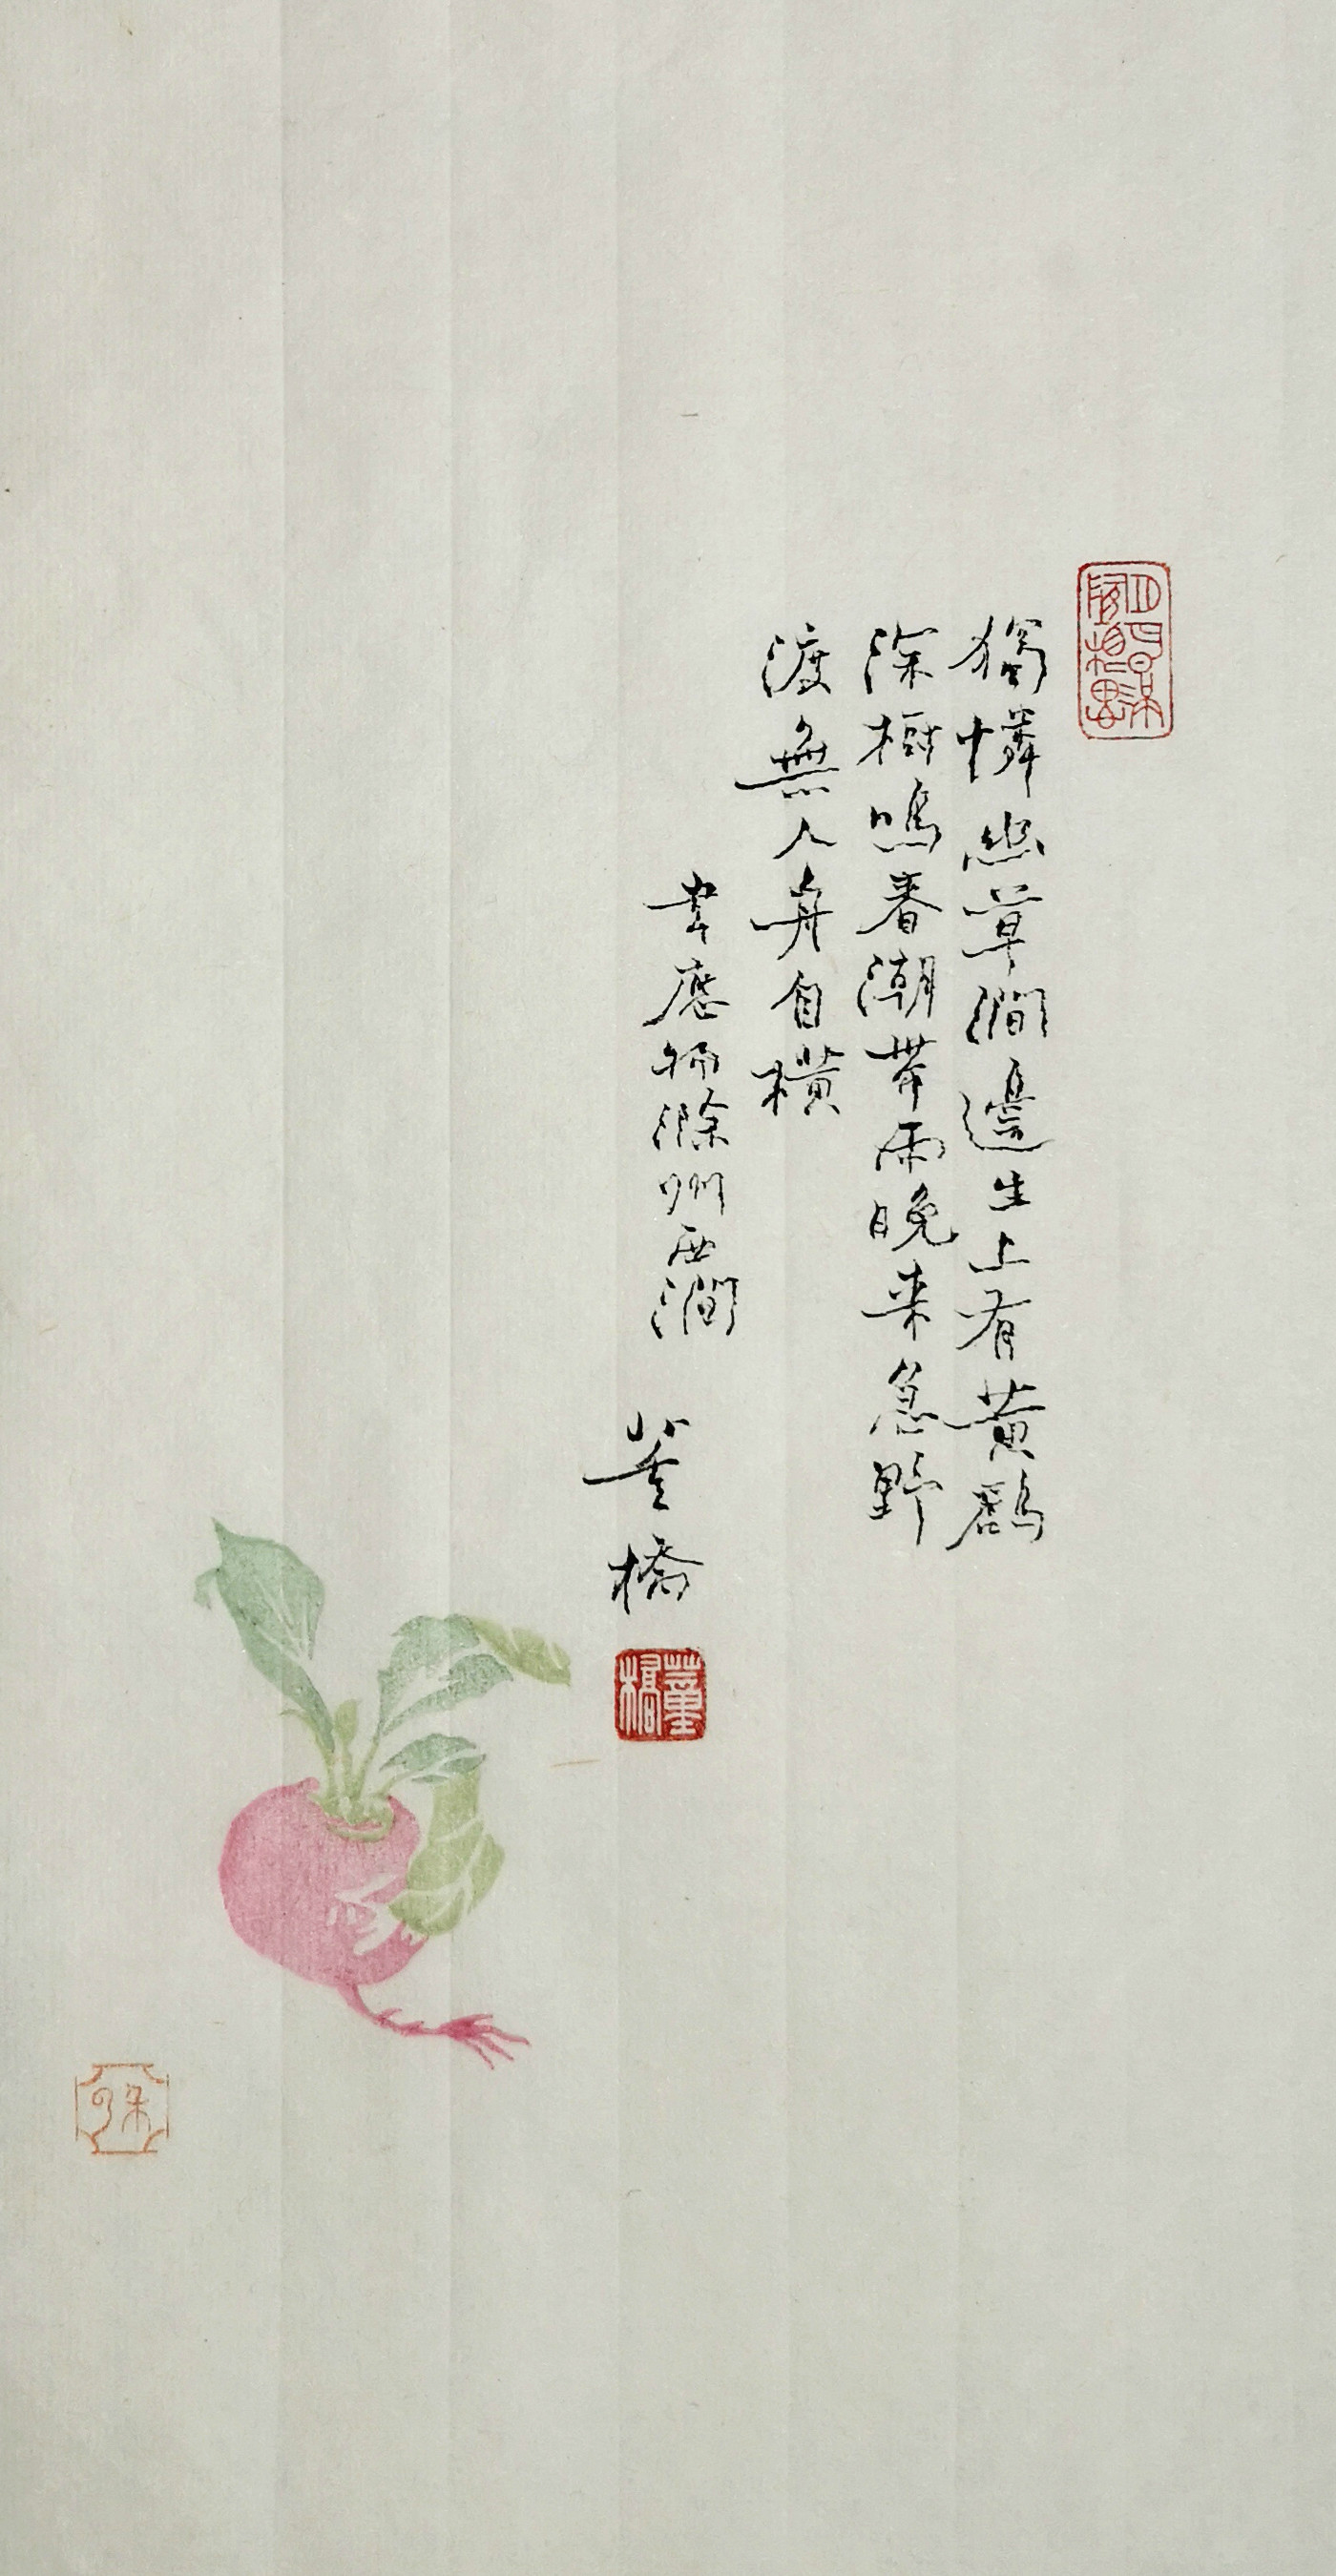 獨憐幽草澗邊生上有黃鸝
深樹鳴春潮帶雨晚来急野
渡無人舟自橫
韋應物滁州西澗
董橋
董橋